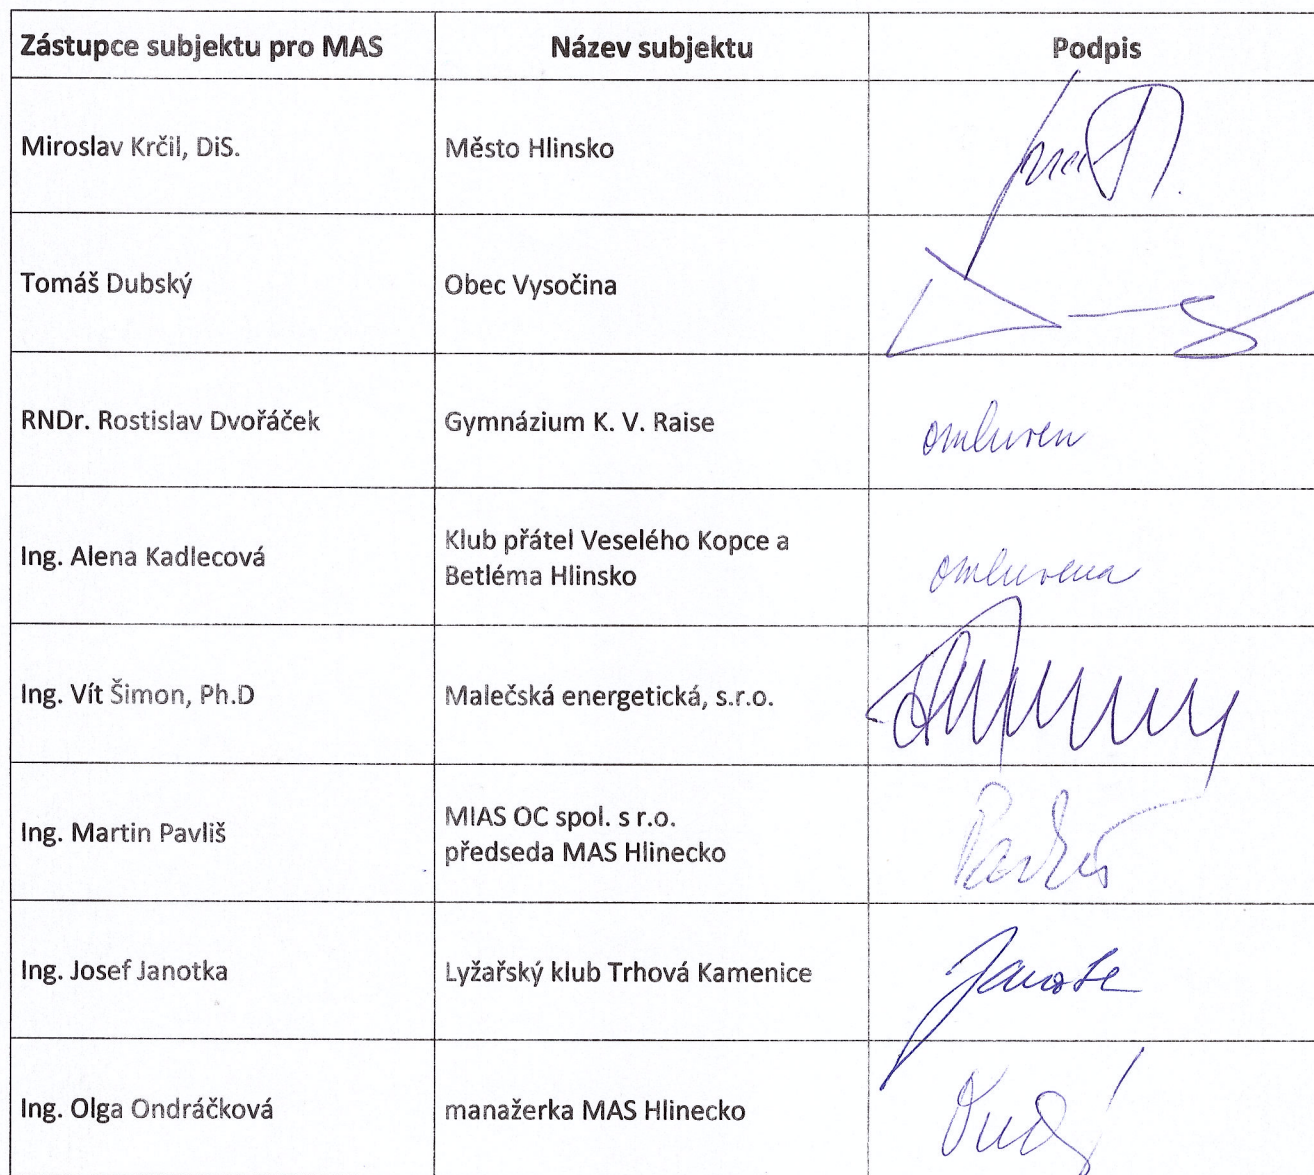 Zástupce subjektu pro MAS Název subjektu Podpis
Miroslav Krčil, DiS. Město Hlinsko
Tomáš Dubský Obec Vysočina
RNDr. Rostislav Dvořáček Gymnázium K. V. Raise omluven
Ing. Alena Kadlecová
Klub přátel Veselého Kopce a
Betléma Hlinsko
omluvena
Ing. Vít Šimon, Ph.D Malečská energetická, s.r.o.
Ing. Martin Pavliš
MIAS OC spol. s r.o.
předseda MAS Hlinecko
Ing. Josef Janotka Lyžařský klub Trhová Kamenice
Ing. Olga Ondráčková manažerka MAS Hlinecko